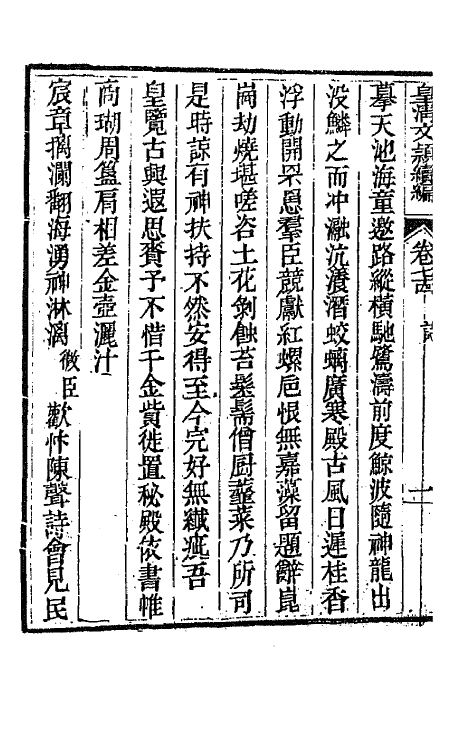 皇清文穎續編 卷七十四 詩 一
摹天池海童邀路縱橫馳鷺濤前度鯨波隨神龍出
没鱗之而冲瀜沆瀁潛蛟螭廣寒殿古風日遲桂香
浮動開罘罳羣臣競獻紅螺卮恨無嘉藻留題辭崑
崗劫燒堪嗟咨土花剝蝕苔髮髵僧厨虀菜乃所司
是時諒有神扶持不然安得至今完好無纖疵吾
皇覽古興遐思賚予不惜千金貲徙置秘殿依書帷
商瑚周簋肩相差金壺灑汁
宸章摛瀾翻海湧神淋漓微臣歡忭陳聲詩會見民